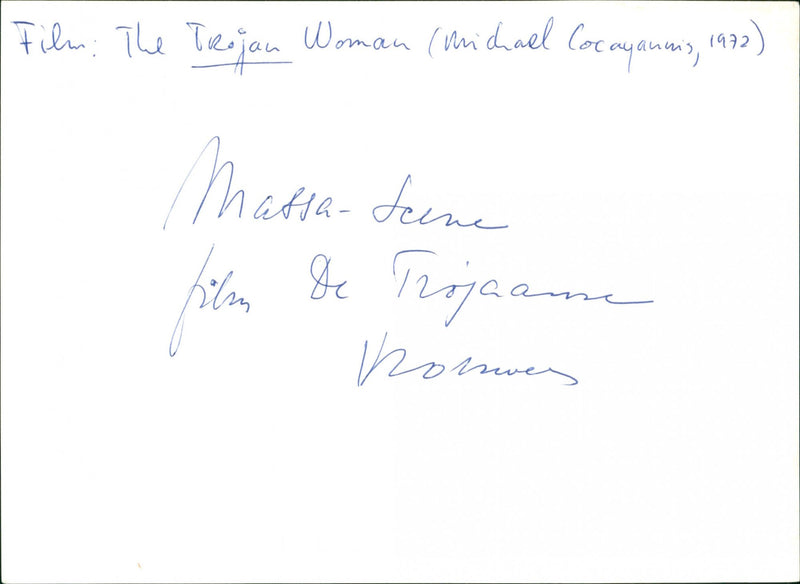 Film: The Trojan Woman (Michael Cocayannis, 1972)
Massa-Scene
film De Trojaanse
Vrouwen